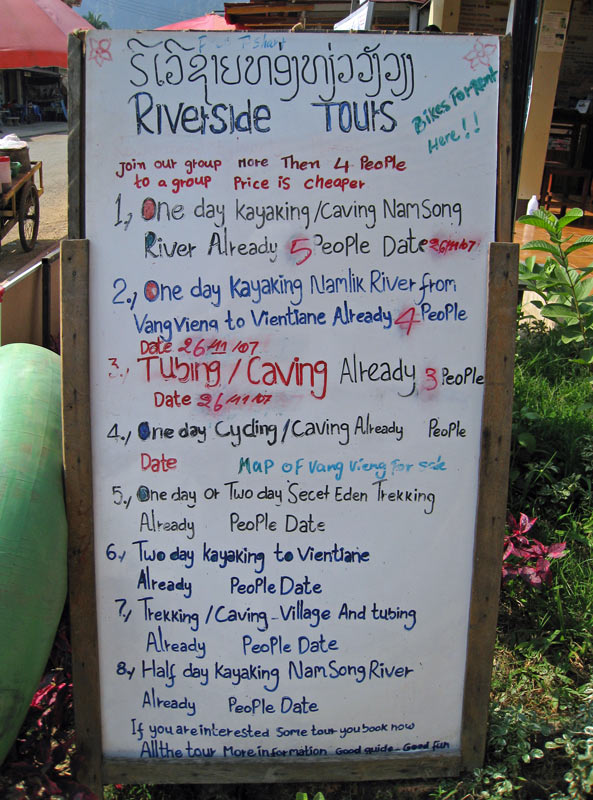 ຣິເວີຊາຍທອ່ງທ່ຽວວັງວຽງ
Riverside Tours
Bikes For Rent
Here!!
Join our group More Then 4 PeoPle
to a group Price is cheaper
1., One day kayaking/Caving NamSong
River Already 5 PeoPle Date 26/11/07
2., One day kayaking Namlik River from
Vang Vieng to Vientiane Already 4 PeoPle
Date 26/11/07
3., Tubing / Caving Already 3 PeoPle
Date 26/11/07
4., One day Cycling/Caving Already PeoPle
Date Map of Vang Vieng for sale
5., One day or Two day Secet Eden Trekking
Already PeoPle Date
6., Two day kayaking to Vientiane
Already PeoPle Date
7., Trekking / Caving - Village And tubing
Already PeoPle Date
8., Half day kayaking NamSong River
Already PeoPle Date
If you are interested Some tour you book now
All the tour More information Good guide - Good fun